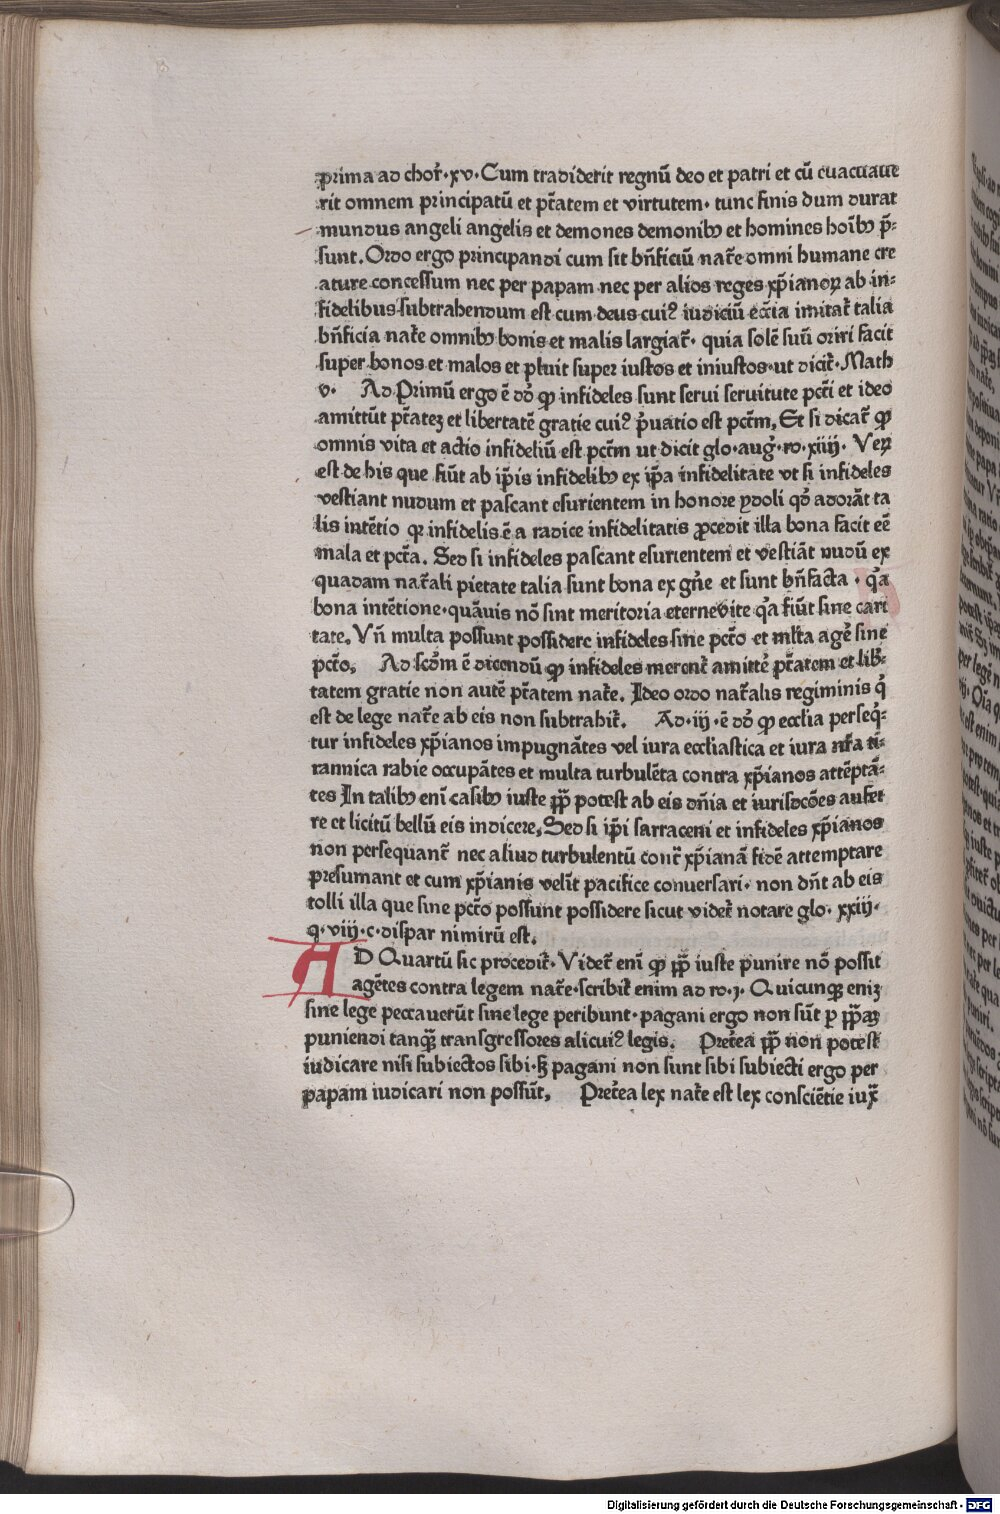 prima ad choꝝ̄·xv·Cum tradiderit regnū deo et patri et cū euacuaue
rit omnem principatū et ptātem et virtutem· tunc finis dum durat
mundus angeli angelis et demones demonibꝫ et homines hoībꝫ p̄-
sunt. Ordo ergo principandi cum sit bn̄ficiū natē omni humane cre
ature concessum nec per papam nec per alios reges xp̄ianoꝝ ab in-
fidelibus subtrahendum est cum deus cuiꝰ iudiciū eccīa imitat̄ talia
bn̄ficia natē omnibꝫ bonis et malis largiat̄· quia solē suū oriri facit
super bonos et malos et pluit super iustos et iniustos·ut dicit̄·Math
v· Ad Primū ergo ē dō ꝙ infideles sunt serui seruitute pcc̄i et ideo
amittūt ptātez et libertatē gratie cuiꝰ p̄uatio est pctm̄, Et si dicat̄ ꝙ
omnis vita et actio infideliū est pctm̄ ut dicit glo·auḡ·ro·xiiij· Veꝝ
est de his que fiūt ab ip̄is infidelibꝫ ex ip̄a infidelitate vt si infideles
vestiant nudum et pascant esurientem in honore ydoli qd̄ adorāt ta
lis intētio qꝛ infidelis ē a radice infidelitatis ꝓcedit illa bona facit eē
mala et pctā. Sed si infideles pascant esurientem et vestiāt nudū ex
quadam nat̄ali pietate talia sunt bona ex gn̄e et sunt bn̄facta · qꝛa
bona intētione·quāuis nō sint meritoria eterne vite qꝛa fiūt sine cari
tate. Vn̄ multa possunt possidere infideles sine pctō et mltā agē sine
pctō, Ad scdm̄ ē dicendū ꝙ infideles merent̄ amittē ptātem et lib̄-
tatem gratie non autē ptātem natē. Ideo ordo nat̄alis regiminis q̄
est de lege natē ab eis non subtrahit̄. Ad·iij·ē dō ꝙ ecclīa perseq̄-
tur infideles xp̄ianos impugnātes vel iura eccliastica et iura nrā ti-
rannica rabie occupātes et multa turbulēta contra xp̄ianos attēptā-
tes In talibꝫ enī casibꝫ iuste pp̄ potest ab eis dn̄ia et iurisdcōes aufer
re et licitū bellū eis indicere, Sed si ip̄i sarraceni et infideles xp̄ianos
non persequant̄ nec aliud turbulentū cont̄ xp̄ianā fidē attemptare
presumant et cum xp̄ianis velīt pacifice conuersari· non dn̄t ab eis
tolli illa que sine pctō possunt possidere sicut videt̄ notare glo· xxiij·
q·viij·c·dispar nimirū est.
AD Quartū sic procedit̄·Videt̄ enī ꝙ pp̄ iuste punire nō possit
agētes contra legem natē·scribit̄ enim ad ro·ꝫ· Quicunqꝫ eniꝫ
sine lege peccauerūt sine lege peribunt·pagani ergo non sūt p pp̄aꝫ
puniendi tanqꝫ̄ transgressores alicuiꝰ legis. Pret̄ea pp̄ non potest
iudicare nisi subiectos sibi·sꝫ pagani non sunt sibi subiecti ergo per
papam iudicari non possūt, Pret̄ea lex natē est lex consciētie iux̄
Digitalisierung gefördert durch die Deutsche Forschungsgemeinschaft - DFG